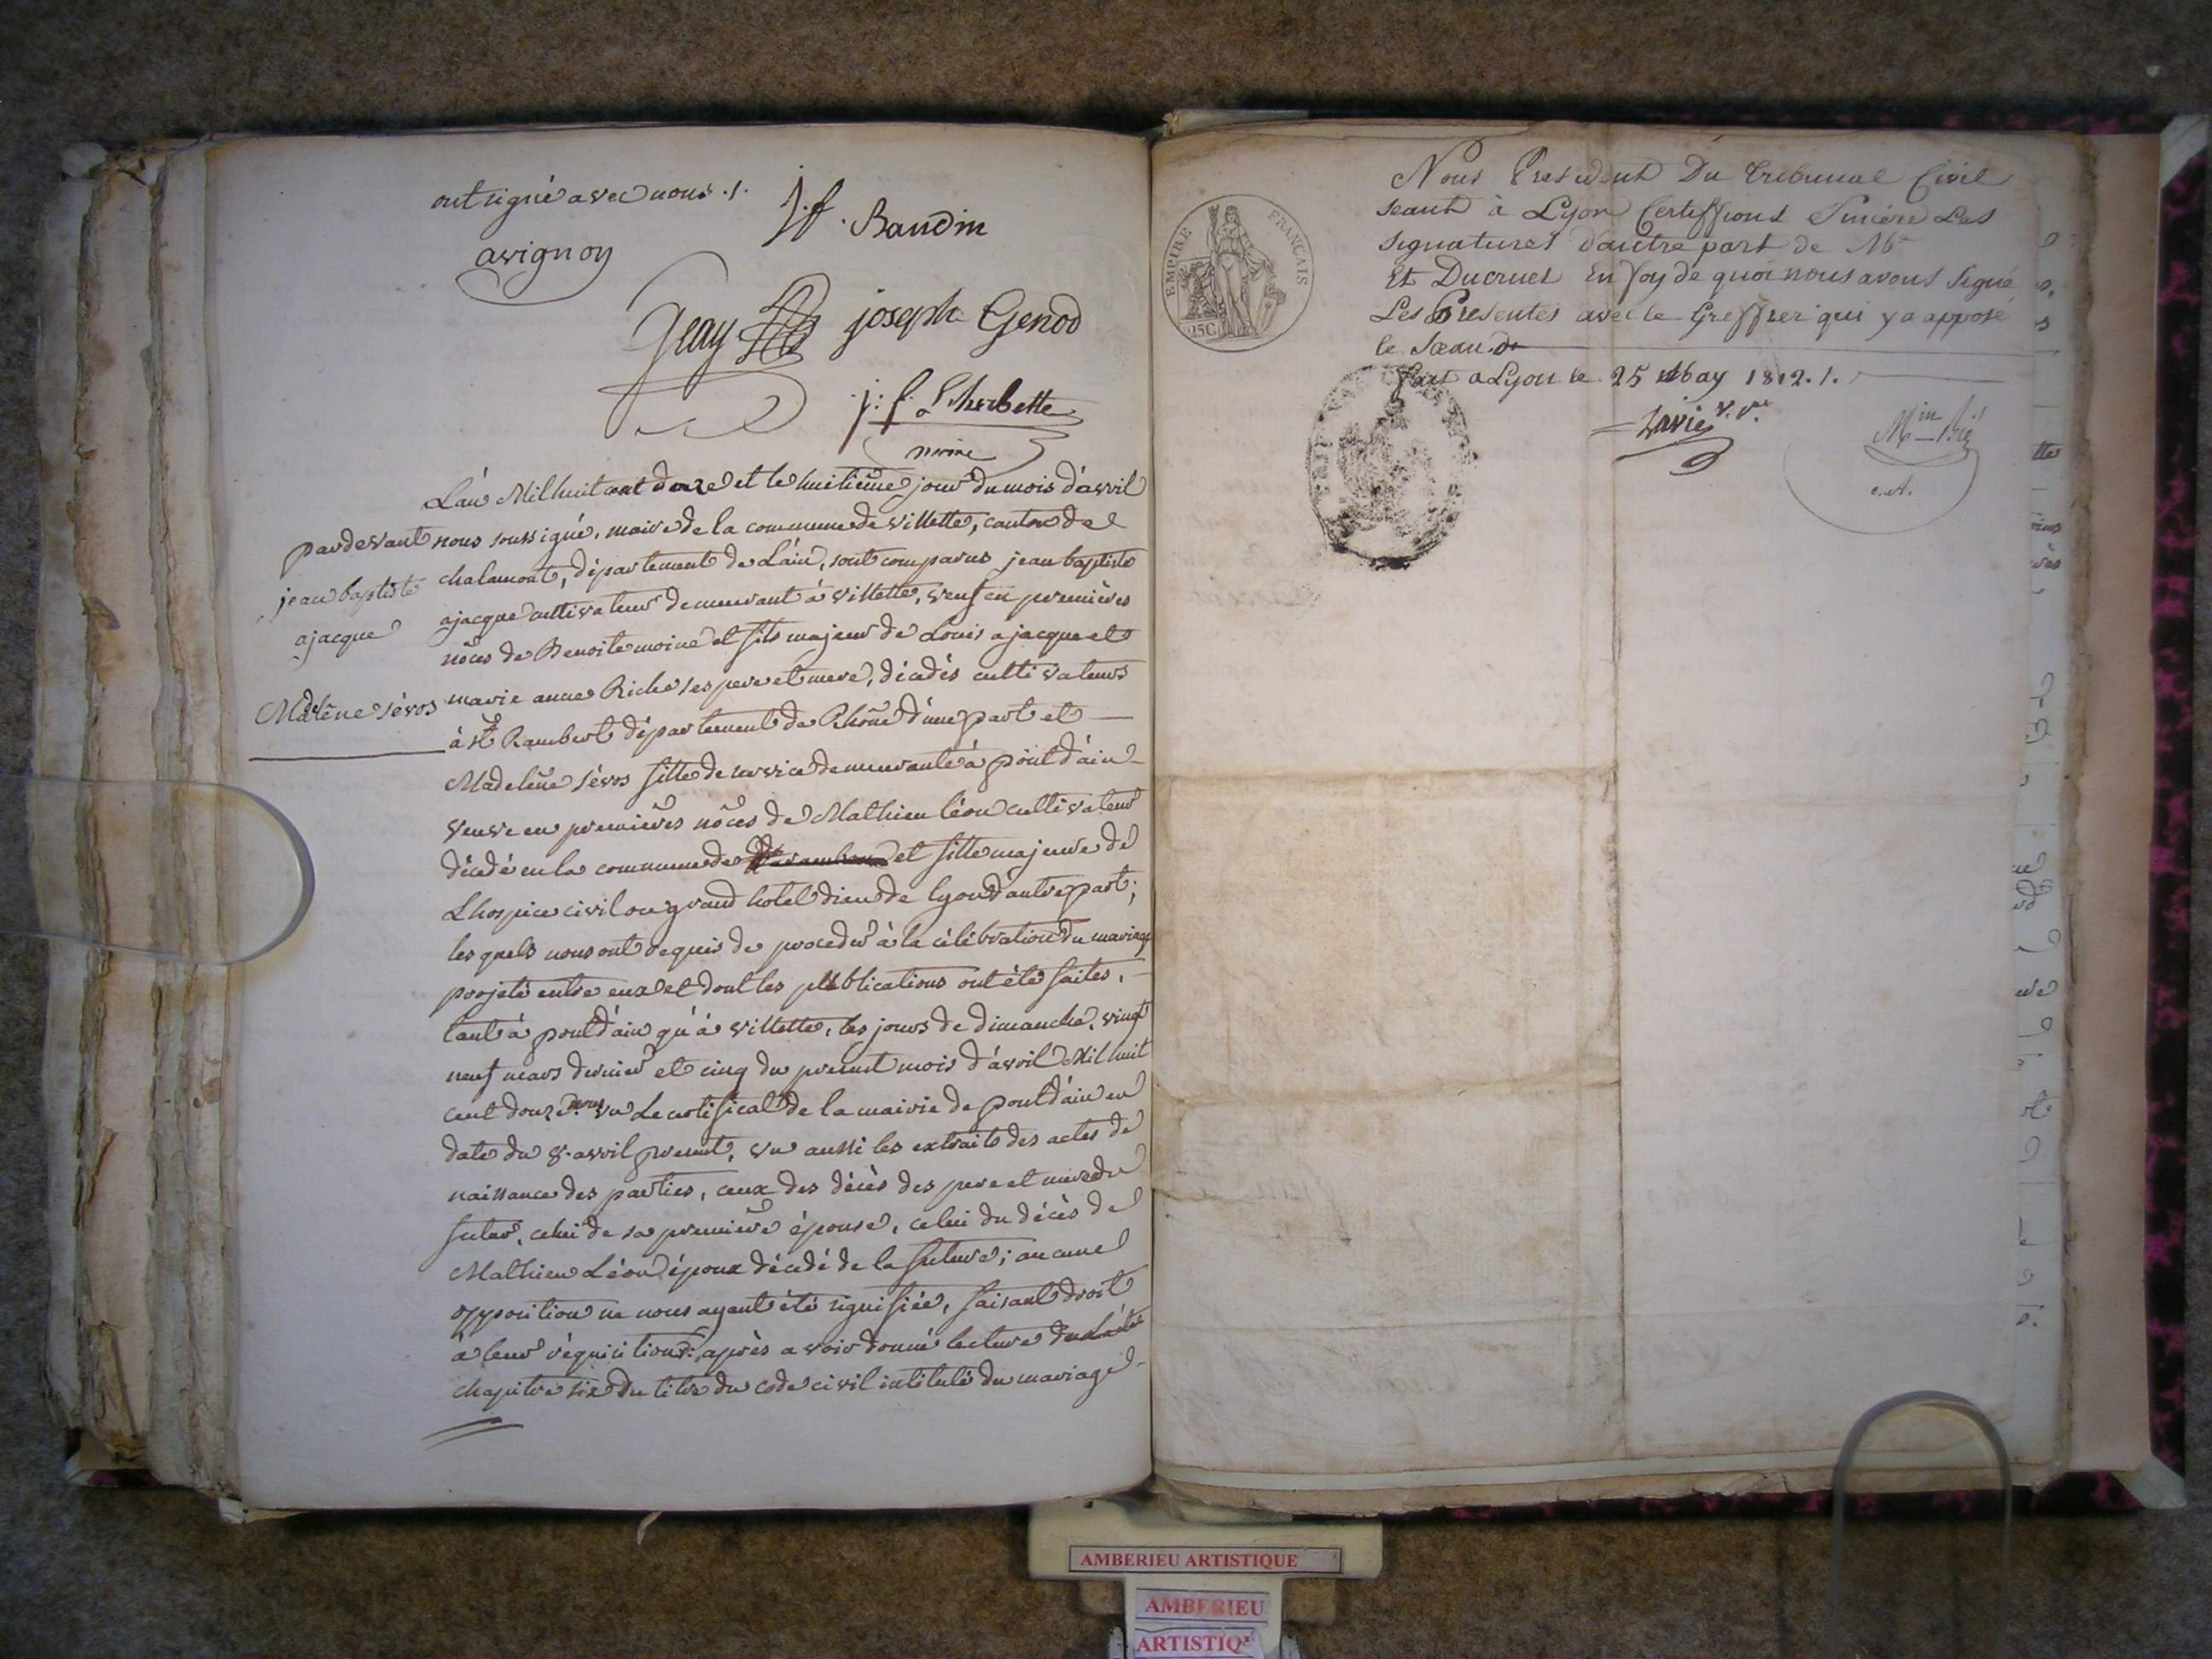 ont signé avec nous ./.
J. f. Baudin
avignon
Geay
joseph Genod
j: f. Lherbette
maire
L'an Mil huit cent douze et le huitième jour du mois d'avril
pardevant nous soussigné, maire de la commune de villette, canton de
chalamont, département de L'ain, sont comparus jean baptiste
ajacque cultivateur demeurant à villette, veuf en premières
nôces de Benoite moine et fils majeur de Louis ajacque et
marie anne Riche ses pere et mere, décédés cultivateurs
à st Rambert département du Rhône d'une part et
jean baptiste
ajacque
Madelêne sévos
Madeleine sévos fille de service demeurante à pont d'ain
veuve en premières nôces de Mathieu léon cultivateur
décédé en la commune de et fille majeure de
L'hospice civil ou grand hotel dieu de lyon d'autre part;
les quels nous ont requis de proceder à la célébration du mariage
projeté entre eux et dont les publications ont été faites,
tant à pont d'ain qu'à villette, les jours de dimanche, vingt
neuf mars dernier et cinq du present mois d'avril Mil huit
cent douze. nous vu Le certificat de la mairie de pont d'ain en
date du 8. avril present, vu aussi les extraits des actes de
naissance des parties, ceux des décès des pere et mere du
futur, celui de sa première épouse, celui du décès de
Mathieu Léon époux décédé de la future; aucune
opposition ne nous ayant été signifiée, faisant droit
à leur réquisition: après avoir donné lecture du
chapitre six du titre du code civil intitulé du mariage
EMPIRE FRANÇAIS
25C
Nous President Du tribunal Civil
seant à Lyon Certiffions Sincère Les
signatures d'autre part de Me
Et Ducruet En foy de quoi nous avons Signé
Les Presentes avec le Greffier qui y a apposé
le Sceau
fait a Lyon le 25 May 1812 ./.
AMBERIEU ARTISTIQUE
AMBERIEU
ARTISTIQ